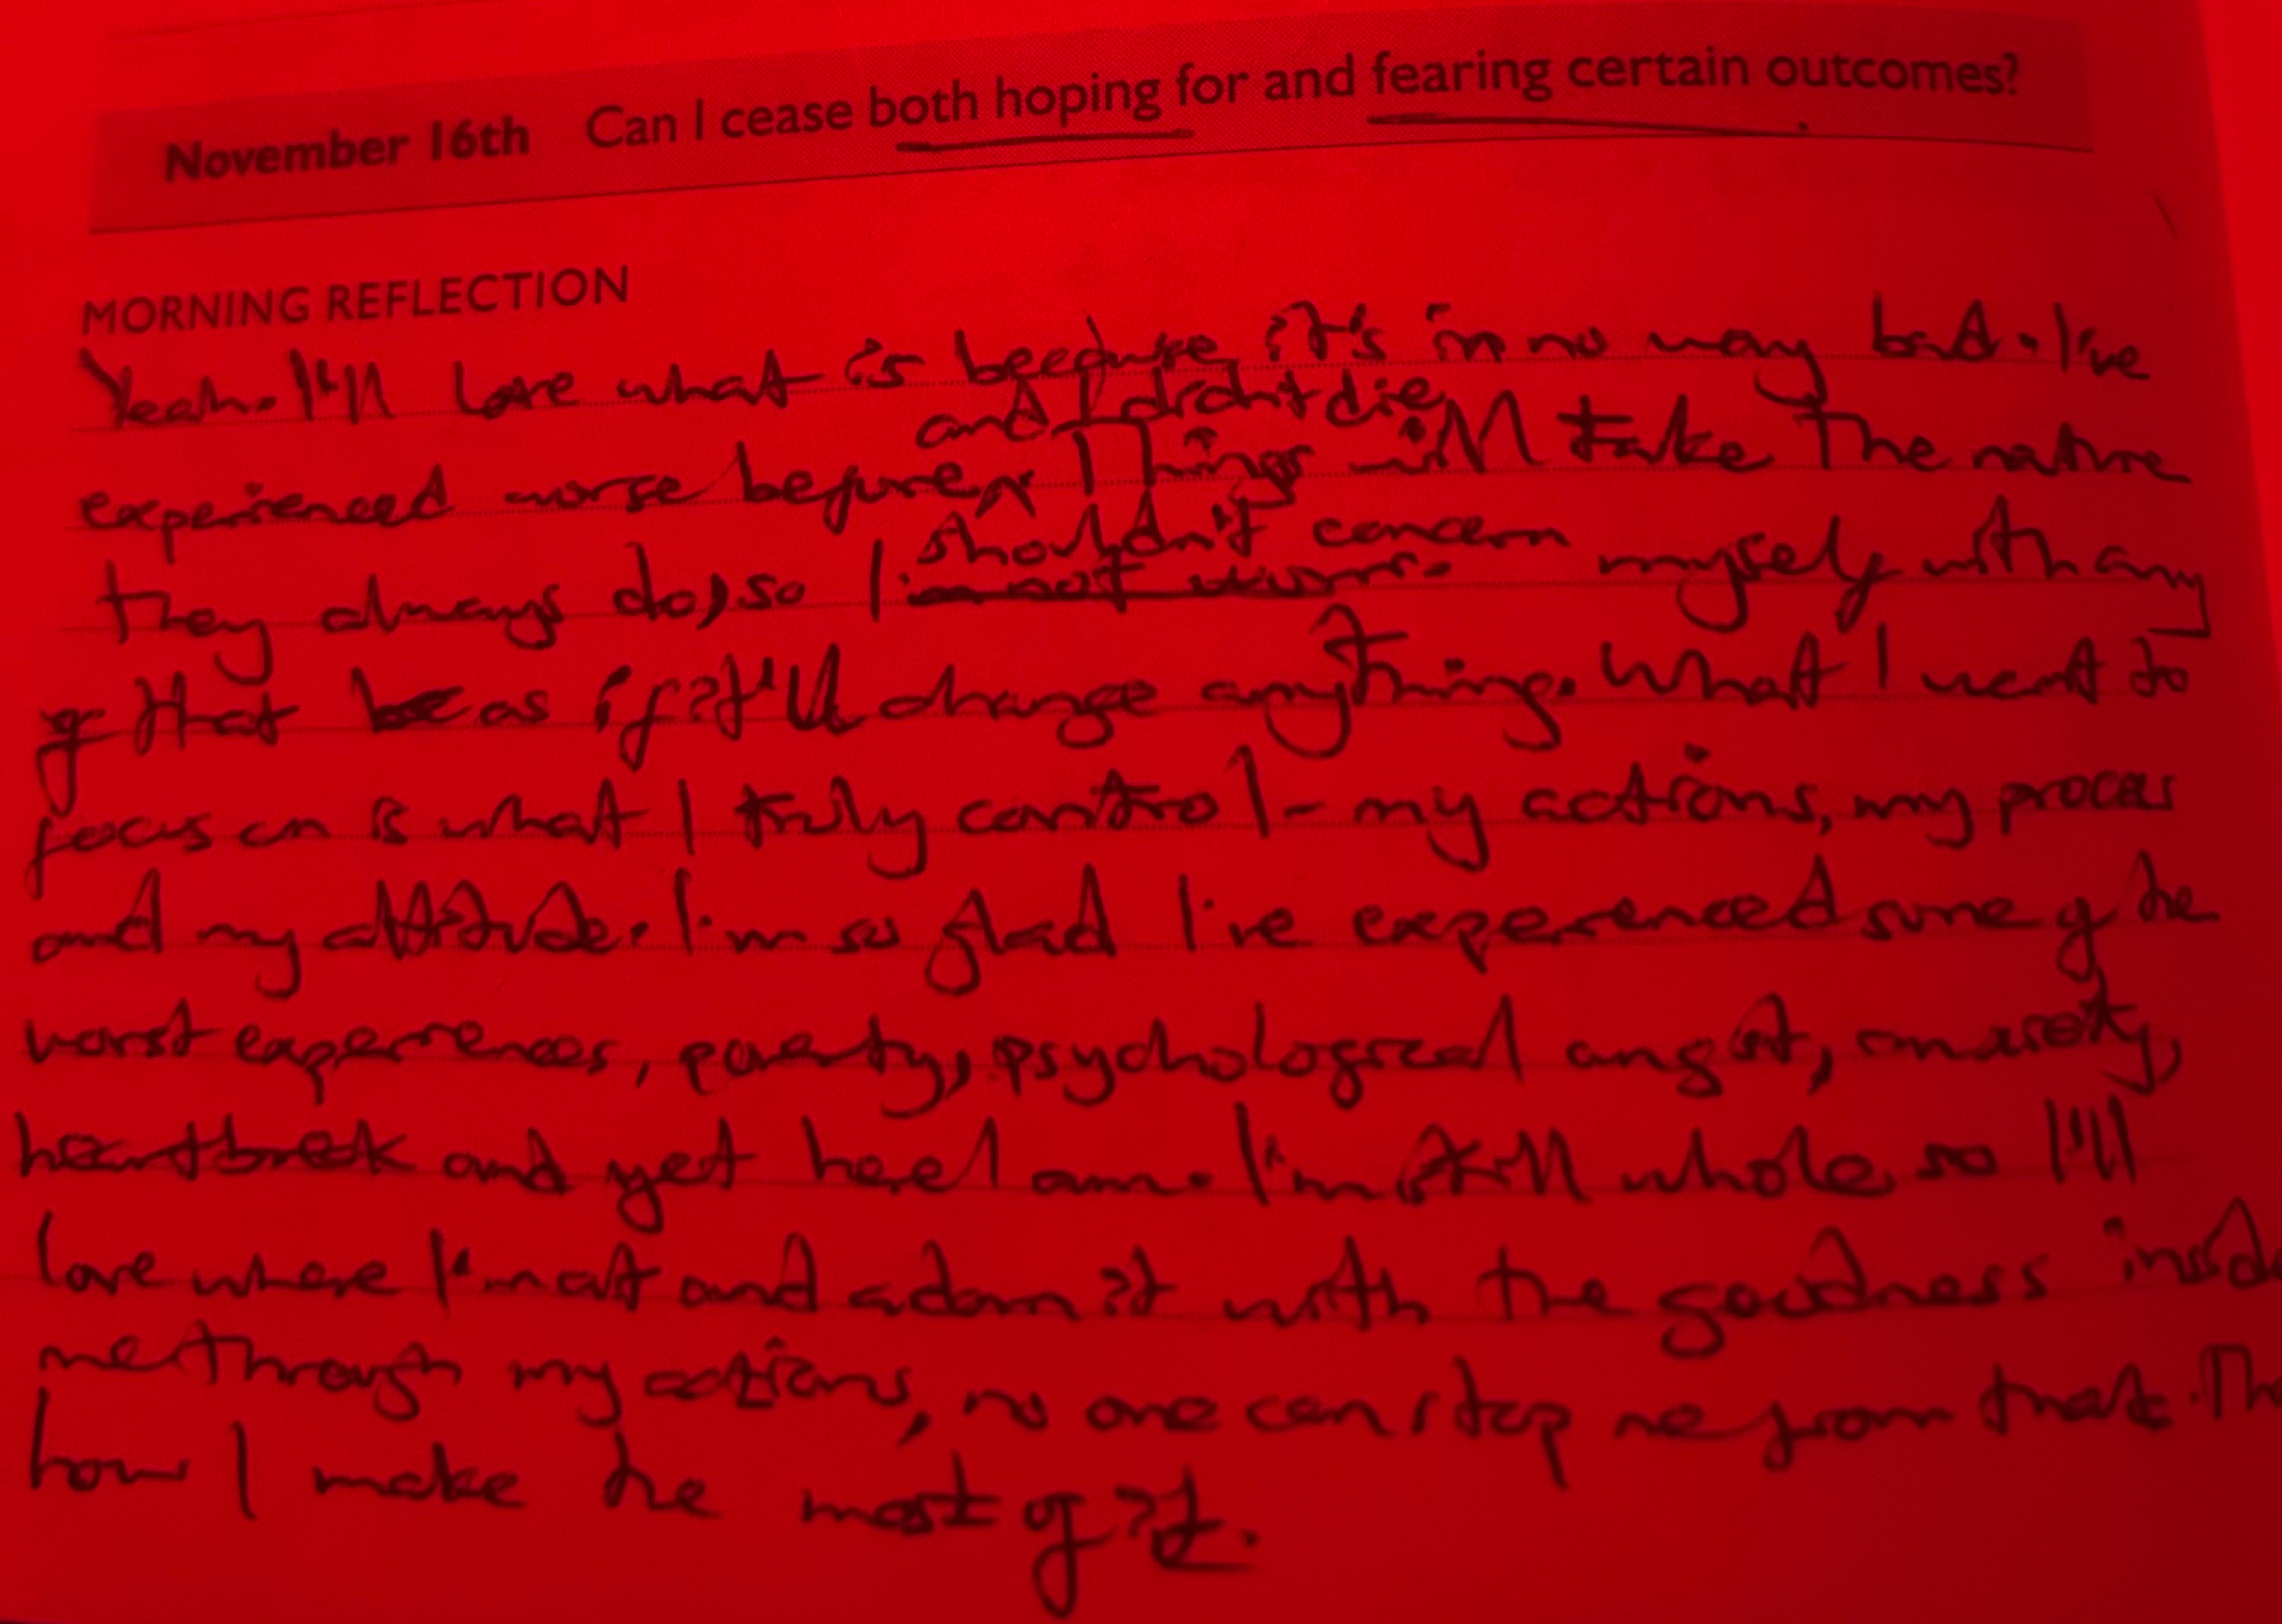 November 16th Can I cease both hoping for and fearing certain outcomes?
MORNING REFLECTION
Yeah. I'll love what is because it's in no way bad. I've
and I didn't die
experienced worse before. Things will take the nature
shouldn't concern
they always do, so I myself with any
of that as if it'll change anything. What I want to
focus on is what I truly control - my actions, my process
and my attitude. I'm so glad I've experienced some of the
worst experiences, poverty, psychological angst, anxiety,
heartbreak and yet here I am. I'm still whole so I'll
love where I'm at and adorn it with the goodness inside
me through my actions, no one can stop me from that.
how I make the most of it.